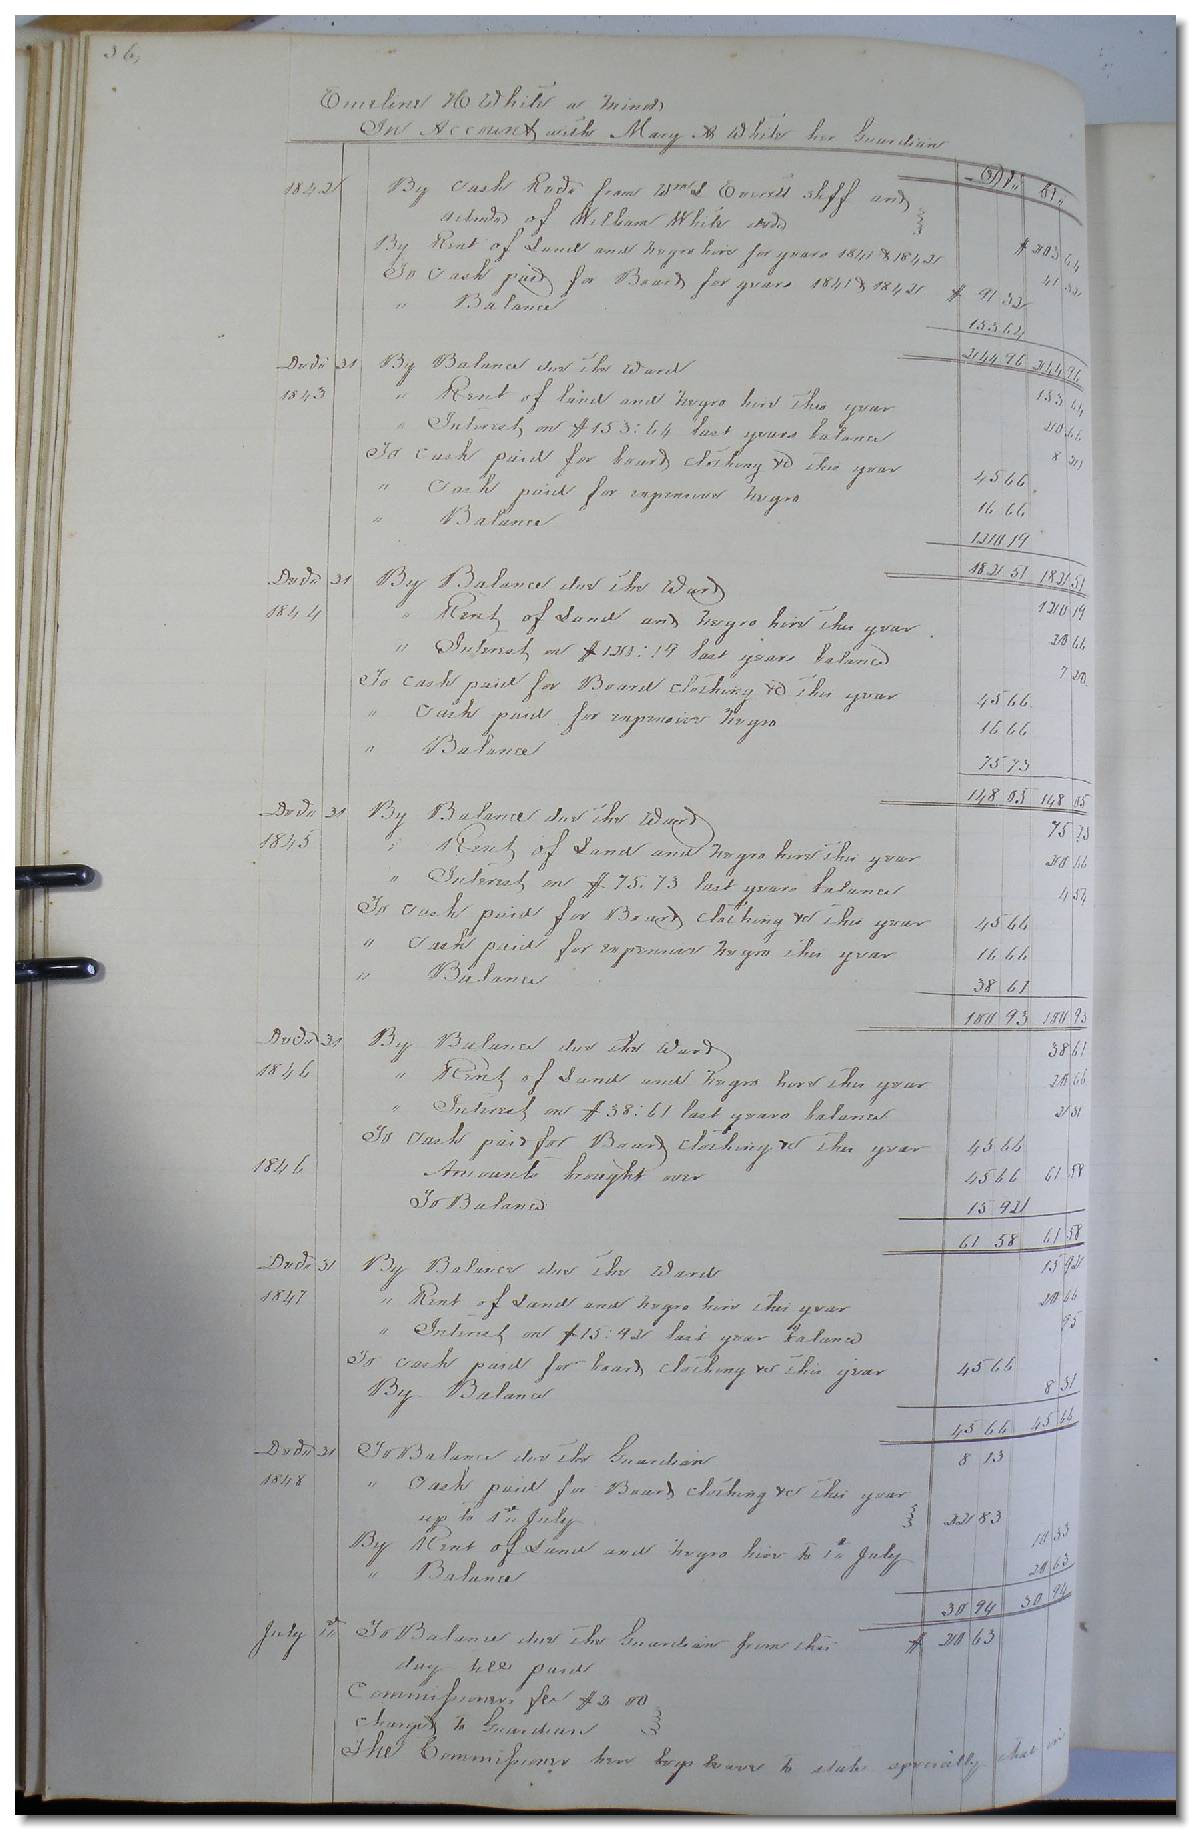 36,
Emeline H White a minor
In Account with Mary A White her Guardian
Dr,, Cr,,
1842 By Cash Recd from Wm L Everitt Shff and
admr of William White decd $ 203 64
By Rent of Land and negro hire for years 1841 & 1842 41 32
To Cash paid for Board for years 1841 & 1842 $ 91 32
" Balance 153 64
244 96 244 96
Decr 31 By Balance due the Ward 153 64
1843 " Rent of land and negro hire this year 20 66
" Interest on $153:64 last years balance
To Cash paid for board clothing &c this year 45 66
" Cash paid for expenses negro 16 66
" Balance 120 19
182 51 182 51
Decr 31 By Balance due the Ward 120 19
1844 " Rent of Land and negro hire this year 20 66
" Interest on $120:19 last years balance 7 20
To Cash paid for Board clothing &c this year 45 66
" Cash paid for expenses negro 16 66
" Balance 75 73
148 05 148 05
Decr 31 By Balance due the Ward 75 73
1845 " Rent of Land and negro hire this year 20 66
" Interest on $75.73 last years balance 4 54
To Cash paid for Board clothing &c this year 45 66
" Cash paid for expenses negro this year 16 66
" Balance 38 61
100 93 100 93
Decr 31 By Balance due the Ward 38 61
1846 " Rent of Land and negro hire this year 20 66
" Interest on $38:61 last years balance 2 31
To Cash paid for Board clothing &c this year 45 66
1846 Amounts brought over 45 66 61 58
To Balance 15 92
61 58 61 58
Decr 31 By Balance due the Ward 15 92
1847 " Rent of Land and negro hire this year 20 66
" Interest on $15:92 last year balance 95
To Cash paid for board clothing &c this year 45 66
By Balance 8 51
45 66 45 66
Decr 31 To Balance due the Guardian 8 13
1848 " Cash paid for Board clothing &c this year
up to 1st July 22 83
By Rent of Land and negro hire to 1st July 10 33
" Balance 20 63
30 94 30 94
July 1st To Balance due the Guardian from this $ 20 63
day till paid
Commissioners fee $2 00
charged to Guardian
The Commissioner here begs leave to state specially that in